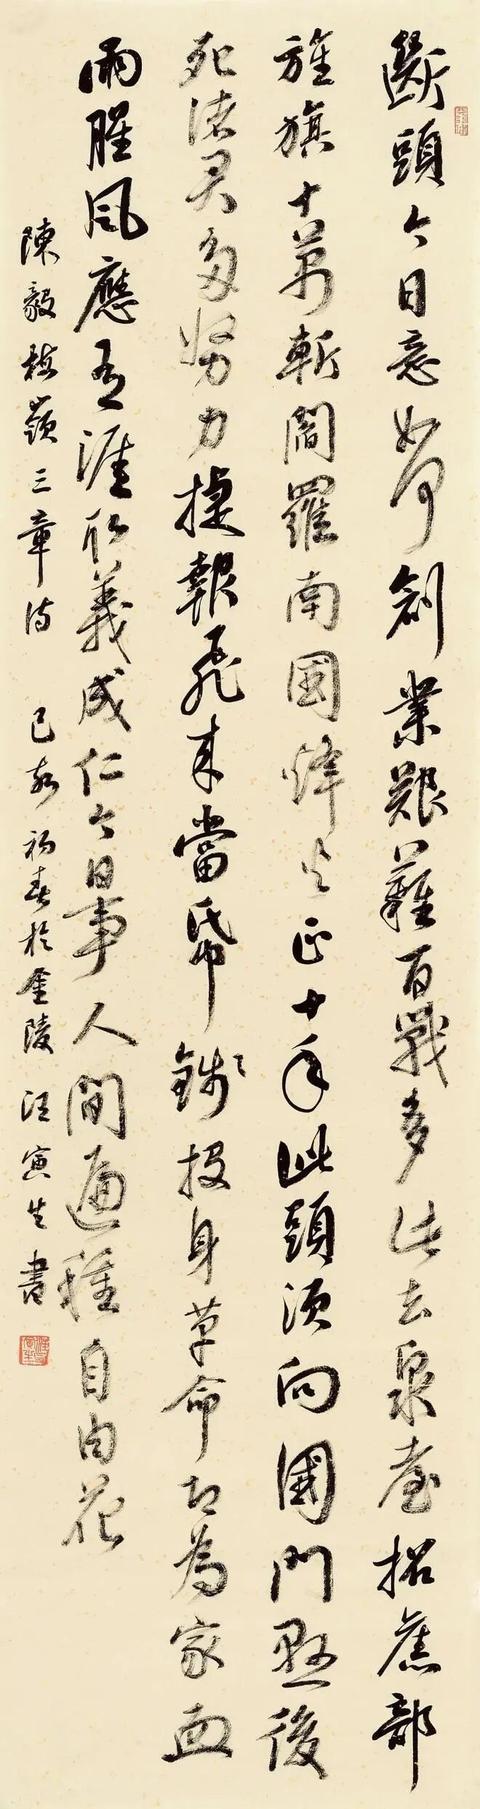 斷頭今日意如何創業艱難百戰多此去泉臺招舊部
旌旗十萬斬閻羅南國烽火正十年此頭須向國門懸後
死諸君多努力捷報飛來當帋錢投身革命即為家血
雨腥風應有涯取義成仁今日事人間遍種自由花
陳毅梅嶺三章詩 己亥初春於金陵 汪寅生書